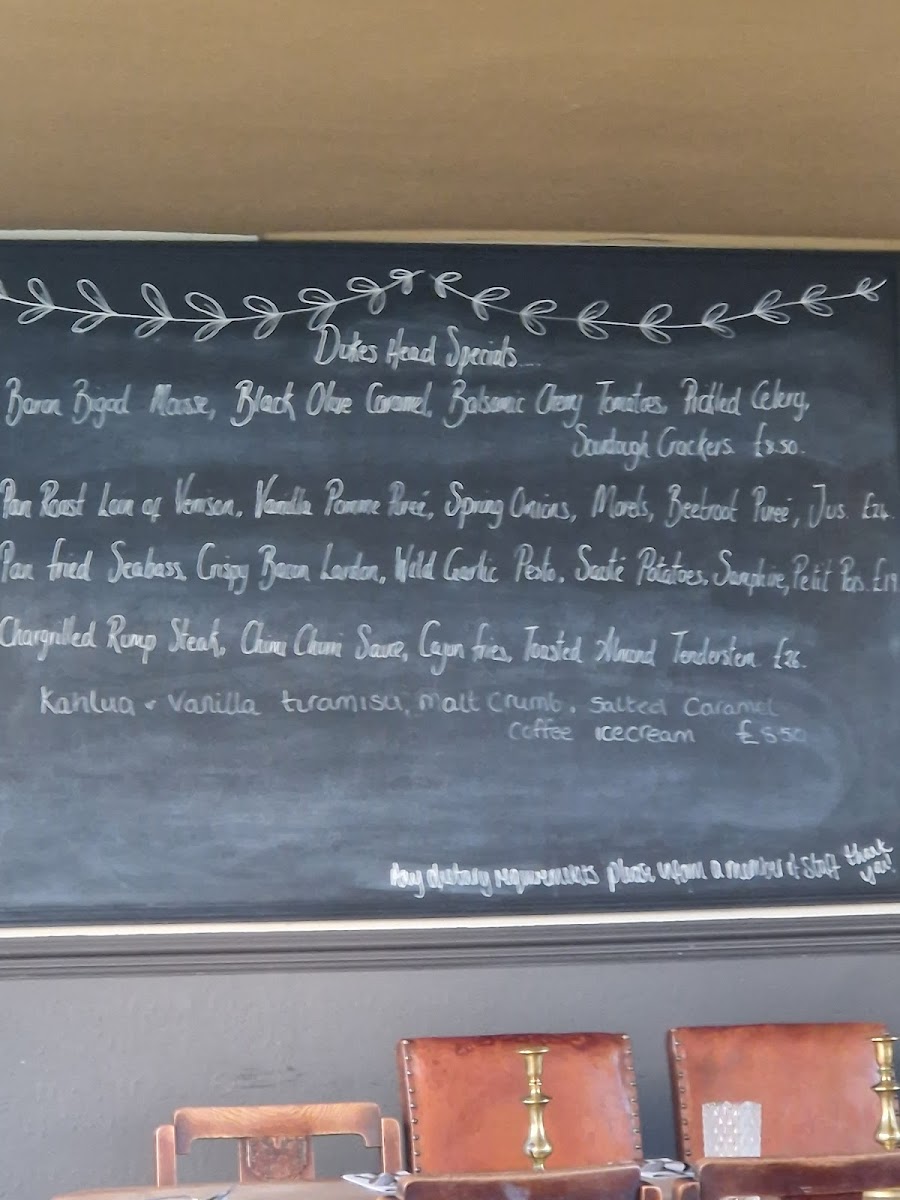 Dukes Head Specials....
Baron Bigod Mousse, Black Olive Caramel, Balsamic Cherry Tomatoes, Pickled Celery,
Sourdough Crackers. £8.50.
Pan Roast Loin of Venison, Vanilla Pomme Pureé, Spring Onions, Morels, Beetroot Pureé, Jus. £26.
Pan fried Seabass, Crispy Bacon Lardon, Wild Garlic Pesto, Sauté Potatoes, Samphire, Petit Pois. £19
Chargrilled Rump Steak, Chimi Churri Sauce, Cajun fries, Toasted Almond Tenderstem. £26.
Kahlua & Vanilla tiramisu, malt crumb, salted caramel
coffee icecream £8.50
Any dietary requirements please inform a member of staff thank
you!